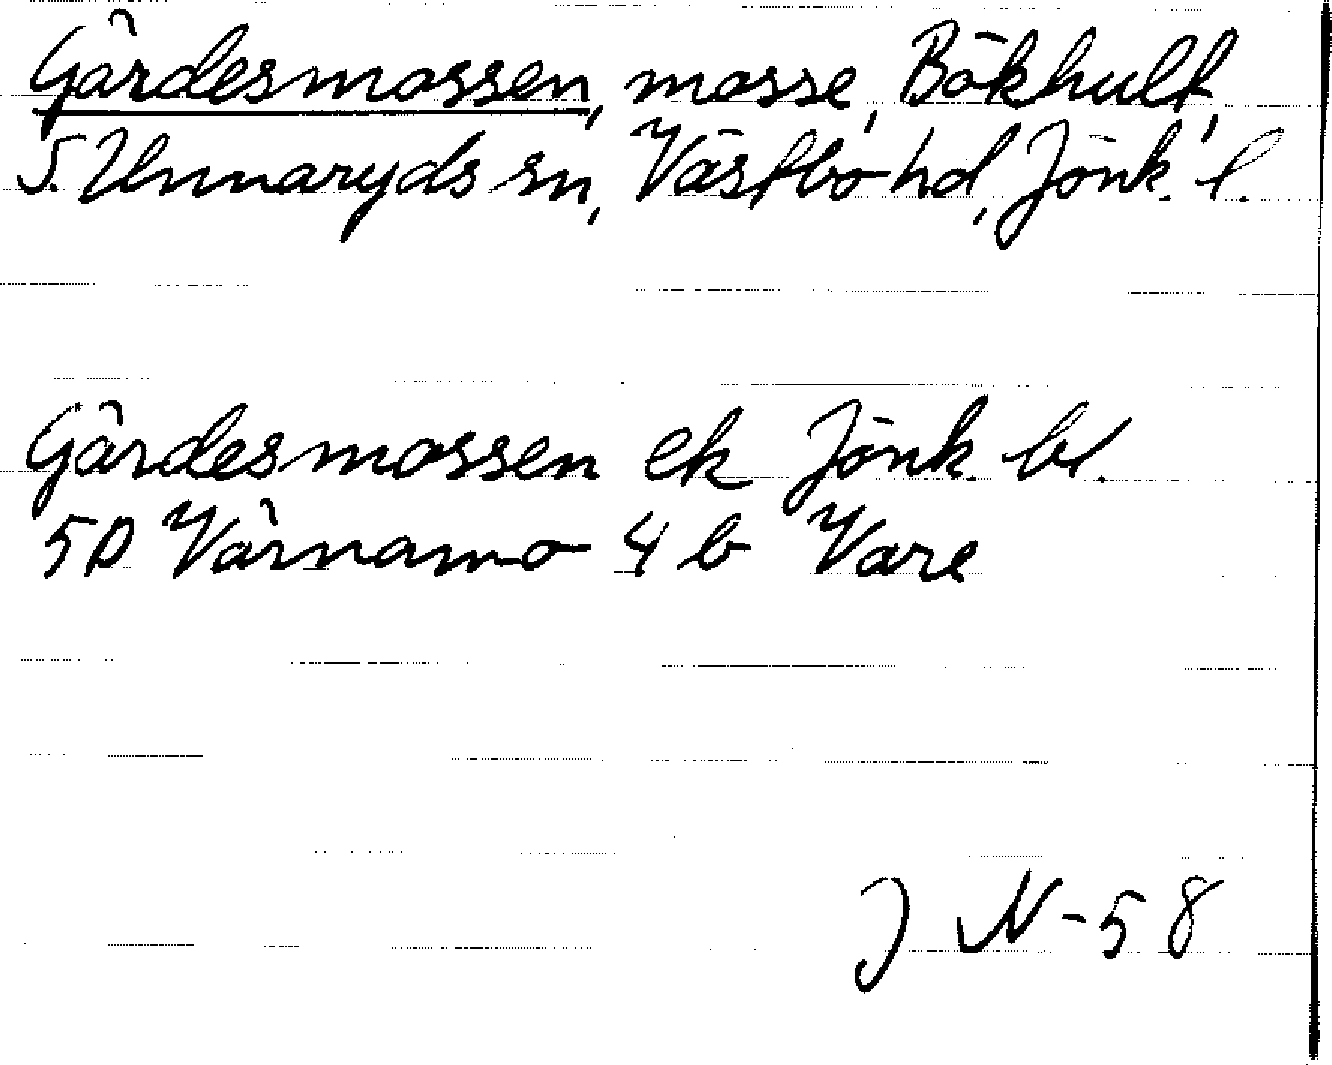 Gärdesmossen, mosse, Bökhult,
S. Unnaryds sn, Västbo hd, Jönk. l.
Gärdesmossen ek Jönk. bl.
5D Värnamo 4 b Vare
J N-58